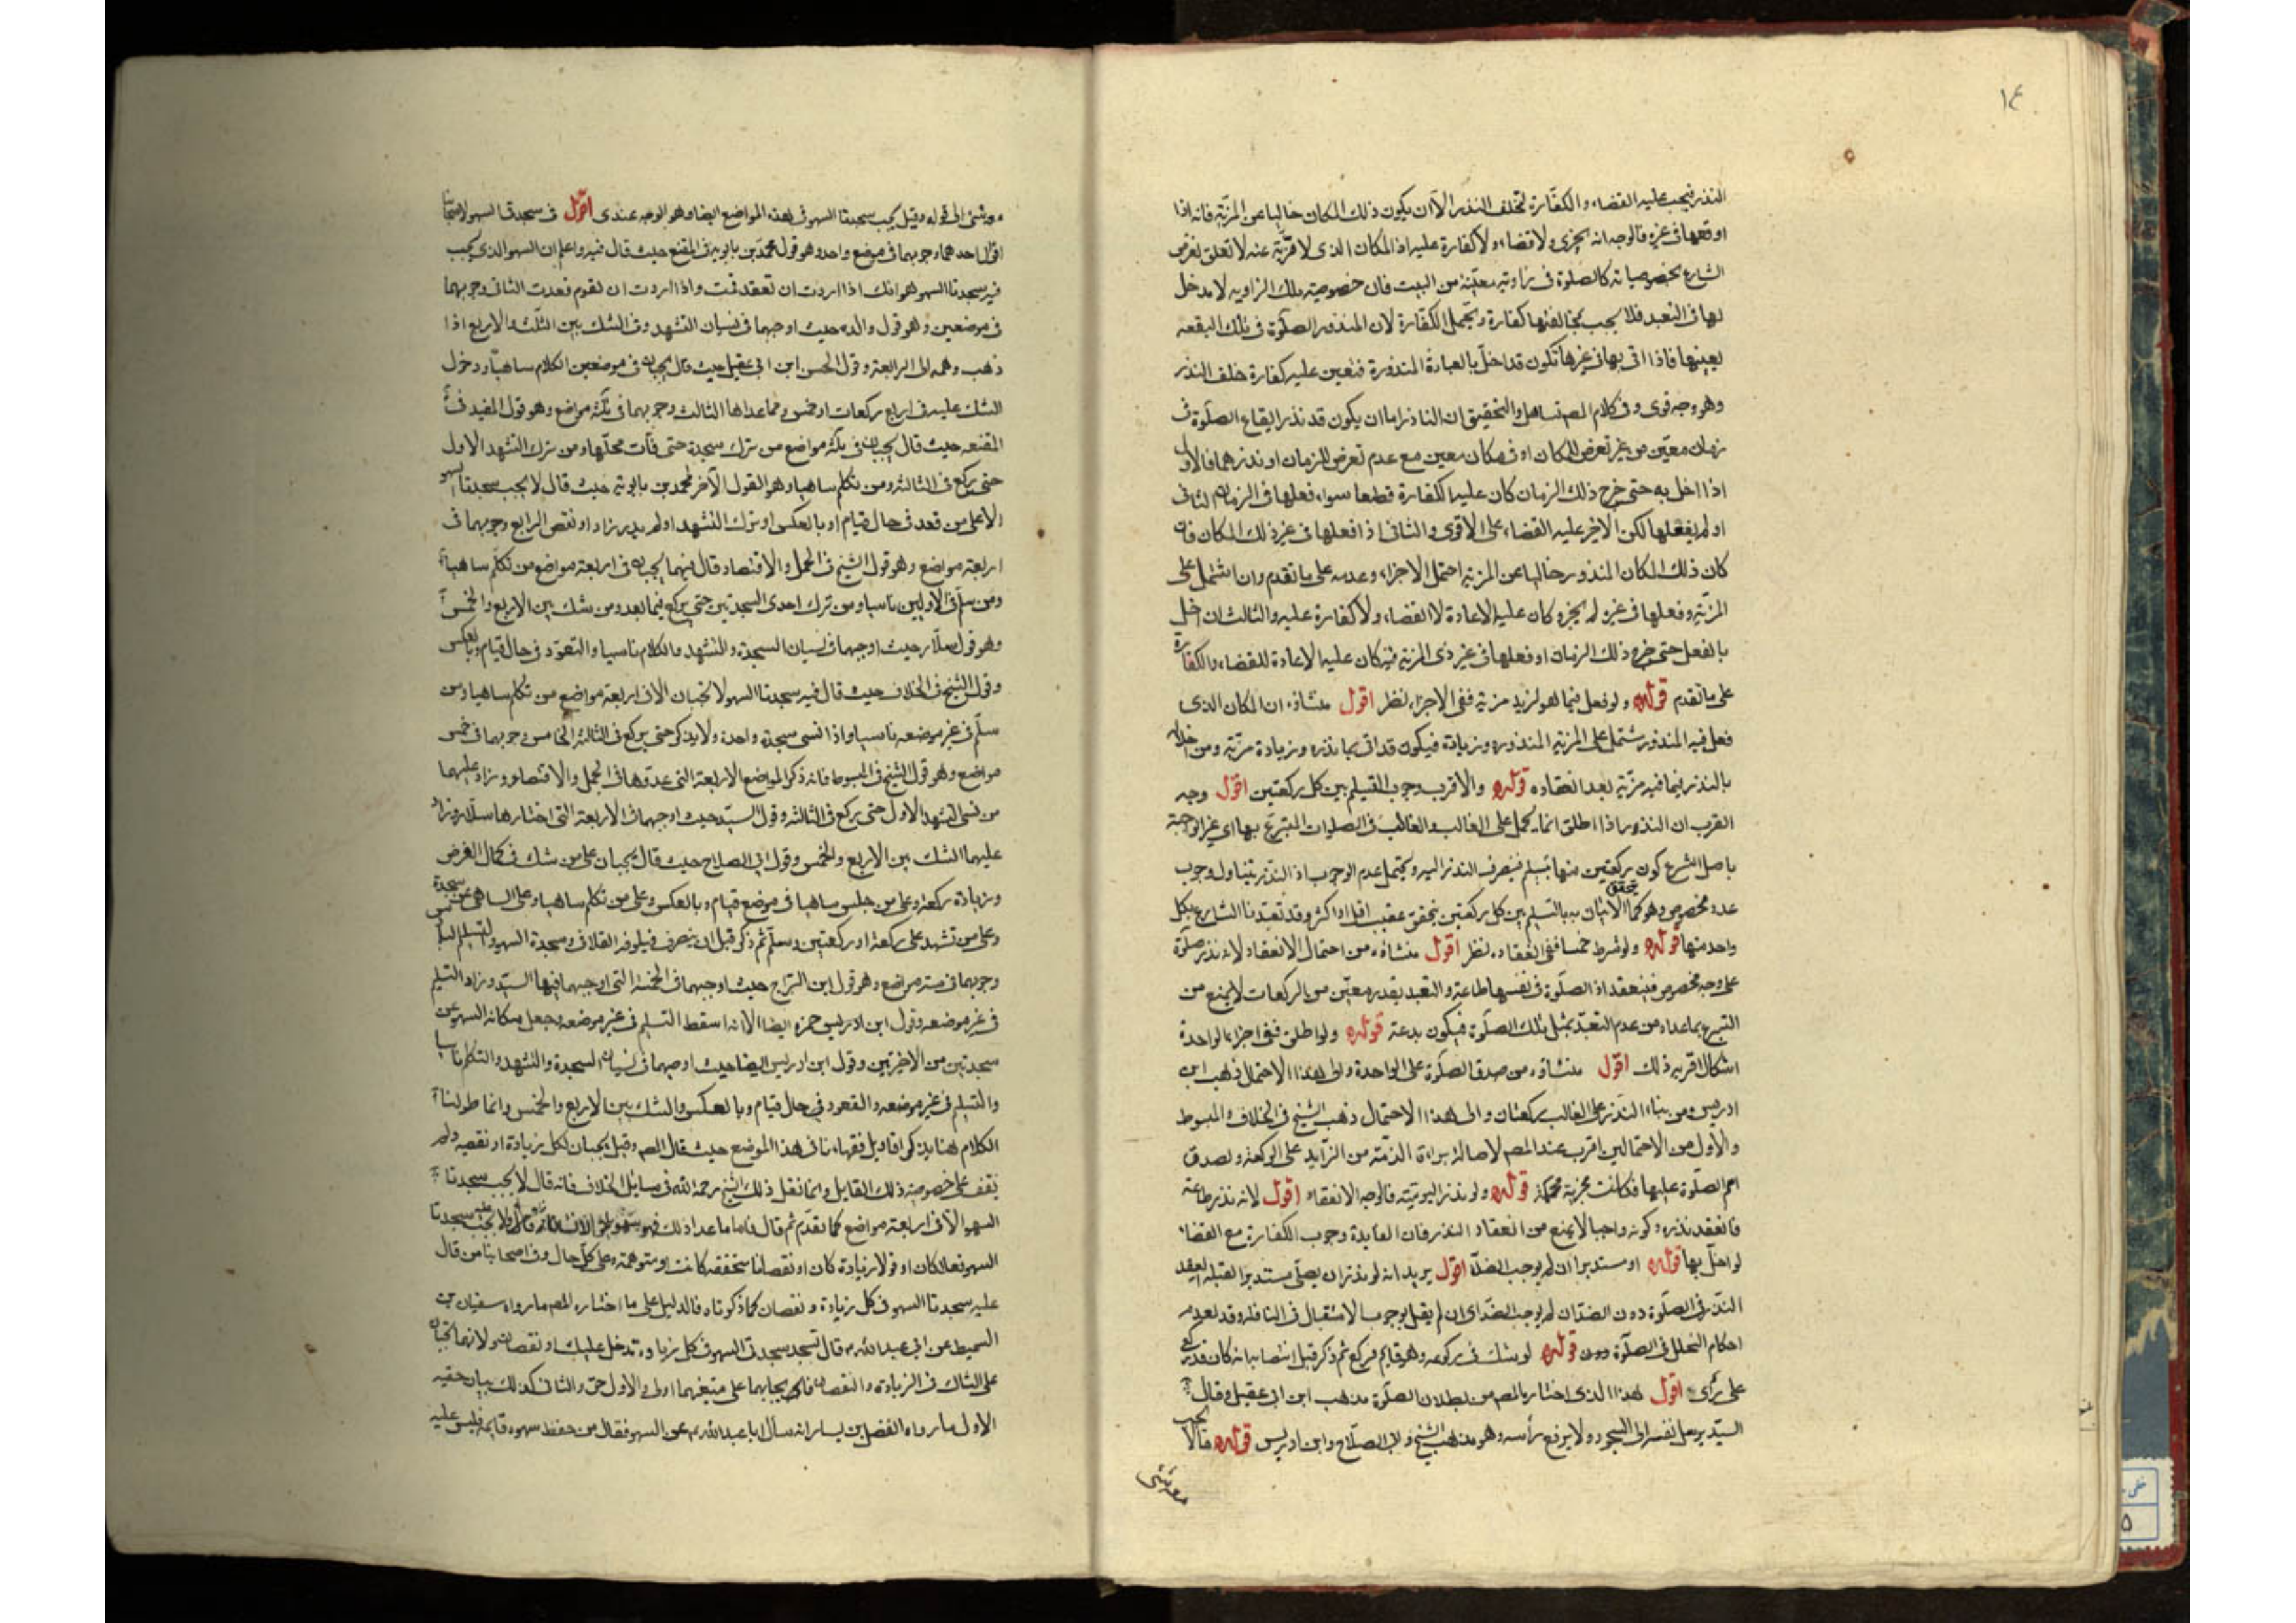 ١٤
النذر فيجب عليه القضاء والكفارة لتخلف النذر الا ان يكون ذلك المكان خاليا عن المزية فانه اذا
اوقعها في غيره فالوجه انه يجزي ولا قضاء ولا كفارة عليه اذ المكان الذي لا مزية عنه لا تعلق لغرض
الشارع بخصوصياته كالصلوة في زاوية معينة من البيت فان خصوصية ملك الزاويه لا مدخل
لها في التعبد فلا يجب بمخالفتها كفارة ويحتمل الكفارة لان المنذور الصلوة في تلك البقعه
بعينها فاذا اتى بها في غيرها تكون قد اخل بالعبادة المنذورة فتعين عليه كفارة خلف النذر
وهو وجه قوى وفي كلام المص تساهل والتحقيق ان الناذر اما ان يكون قد نذر ايقاع الصلوة في
زمان معين من غير تعرض للمكان او في مكان معين مع عدم تعرض للزمان او نذرهما فالاول
اذا اخل به حتى خرج ذلك الزمان كان عليه الكفارة قطعا سواء فعلها في الزمان الثاني
او لم يفعلها لكن الاخير عليه القضاء على الاقوى والثاني اذا فعلها في غير ذلك المكان فان
كان ذلك المكان المنذور خاليا عن المزية احتمل الاجزاء وعدمه على ما تقدم وان اشتمل على
المزية وفعلها في غيره لم يجزه وكان عليه الاعادة لا القضاء ولا كفارة عليه والثالث ان اخل
بالفعل حتى خرج ذلك الزمان او فعلها في غير ذي المزية فيه كان عليه الاعادة للقضاء والكفارة
على ما تقدم قوله ولو فعل فيما هو ازيد مزية ففي الاجزاء نظر اقول منشاؤه ان المكان الذي
فعل فيه المنذور يشتمل على المزية المنذوره وزيادة فيكون قد اتى بما نذره وزيادة مزية ومن اخلاله
بالنذر فيما فيه مزية بعد انعقاده قوله والاقرب وجوب التسليم بين كل ركعتين اقول وجه
القرب ان النذور اذا اطلق انما يحمل على الغالب والغالب في الصلوات المتبرع بها اي غير الواجبة
باصل الشرع كون ركعتين منها بتسليم فينصرف النذر اليه ويحتمل عدم الوجوب اذ النذر يتناول وجوب
عدد مخصوص وهو كما يتحقق الاتيان به بالتسليم بين كل ركعتين يتحقق عقيب اقل او اكثر وقد تعبدنا الشارع بكل
واحد منها قوله ولو شرط خمسا ففي انعقاده نظر اقول منشاؤه من احتمال الانعقاد لانه نذر صلوة
على وجه مخصوص فينعقد اذ الصلوة في نفسها طاعة والتعبد بقدر معين من الركعات لا يمنع من
التبرع بما عداه من عدم التعبد بمثل تلك الصلوة فيكون بدعة قوله ولو اطلق ففي اجزاء الواحدة
اشكال اقربه ذلك اقول منشاؤه من صدق الصلوة على الواحدة والى هذا الاحتمال ذهب ابن
ادريس ومن بناء النذر على الغالب ركعتان والى هذا الاحتمال ذهب الشيخ في الخلاف والمبسوط
والاول من الاحتمالين اقرب عند المص لاصالة براءة الذمة من الزايد على الركعة ولصدق
اسم الصلوة عليها فكانت مجزية قوله ولو نذر اليومية فالوجه الانعقاد اقول لانه نذر طاعة
فانعقد نذره وكونه واجبا لا يمنع من انعقاد النذر فان الفايدة وجوب الكفارة مع القضاء
لو اخل بها قوله او مستدبرا ان لم يوجب الضد اقول يريد انه لو نذر ان يصلي مستدبر القبله انعقد
النذر في الصلوة دون الضد ان لم يوجب الضد اي ان لم يقل بوجوب الاستقبال في النافلة وقد تقدم
احكام الخلل في الصلوة دون قوله لو شك في ركوعه وهو قايم فركع ثم ذكر قبل انتصابه انه كان قد ركع
على رأى اقول هذا الذي اختاره المص من بطلان الصلوة مذهب ابن ابي عقيل وقال
السيد يرسل نفسه الى السجود ولا يرفع رأسه وهو مذهب الشيخ وابي الصلاح وابن ادريس قوله
اقول في سجدتا السهو لاصحابنا
اقوال احدها وجوبهما في موضع واحد وهو قول محمد بن بابويه في المقنع حيث قال فيه واعلم ان السهو الذي يجب
فيه سجدتا السهو هو انك اذا اردت ان تقعد قمت واذا اردت ان تقوم قعدت الثاني وجوبهما
في موضعين وهو قول والده حيث اوجبهما في نسيان التشهد وفي الشك بين الثلث والاربع اذا
ذهب وهمه الى الرابعة وقول الحسن ابن ابي عقيل حيث قال يجبان في موضعين الكلام ساهيا ودخول
الشك عليه في اربع ركعات او خمس وما عداها الثالث وجوبهما في ثلثة مواضع وهو قول المفيد في
المقنعه حيث قال يجبان في ثلثة مواضع من ترك سجدة حتى فات محلها ومن ترك التشهد الاول
حتى يركع في الثالثه ومن تكلم ساهيا وهو القول الآخر لمحمد بن بابويه حيث قال لا يجب سجدتا السهو
الا على من قعد في حال قيام او بالعكس او ترك التشهد او لم يدر زاد او نقص الرابع وجوبهما في
اربعة مواضع وهو قول الشيخ في الجمل والاقتصاد قال فيهما يجبان في اربعة مواضع من تكلم ساهيا
ومن سلم في الاوليين ناسيا ومن ترك احدى السجدتين حتى يركع فيما بعد ومن شك بين الاربع والخمس
وهو قول سلار حيث اوجبهما في نسيان السجدة والتشهد والكلام ناسيا والقعود في حال قيام وبالعكس
وقول الشيخ في الخلاف حيث قال فيه سجدتا السهو لا تجبان الا في اربعة مواضع من تكلم ساهيا ومن
سلم في غير موضعه ناسيا واذا نسي سجدة واحدة ولا يذكر حتى يركع في الثالثة الخامس وجوبهما في خمس
مواضع وهو قول الشيخ في المبسوط فانه ذكر المواضع الاربعة التي عدها في الجمل والاقتصاد وزاد عليهما
من نسي التشهد الاول حتى يركع في الثالثه وقول السيد حيث اوجبهما في الاربعة التي اختارها سلار وزاد
عليهما الشك بين الاربع والخمس وقول ابي الصلاح حيث قال يجبان على من شك في كمال الفرض
وزيادة ركعة وعلى من جلس ساهيا في موضع قيام وبالعكس وعلى من تكلم ساهيا وعلى الساهي عن سجدة
وعلى من تشهد على ركعة او ركعتين وسلم ثم ذكر قبل ان ينصرف فيلزمه التلافي وسجدة السهو
وجوبهما في ستة مواضع وهو قول ابن البراج حيث اوجبهما في الخمسة التي اوجبهما فيها السيد وزاد التسليم
في غير موضعه وقول ابن حمزه ايضا الا انه اسقط التسليم في غير موضعه وجعل مكانه السهو عن
سجدتين من الاخيرتين وقول ابن ادريس ايضا حيث اوجبهما في نسيان السجدة والتشهد والتكلم ناسيا
والتسليم في غير موضعه والقعود في حال قيام وبالعكس والشك بين الاربع والخمس وانما طولنا
الكلام هنا بذكر اقاويل فقهاءنا في هذا الموضع حيث قال المص وقيل يجبان لكل زيادة او نقصه ولم
نقف على خصوصية ذلك القايل وانما نقل ذلك الشيخ رحمه الله في مسايل الخلاف فانه قال لا يجب سجدتا
السهو الا في اربعة مواضع كما تقدم ثم قال فاما ما عدا ذلك فهو ولا يجب عليه سجدتا
السهو فعلا كان او قولا زيادة كان او نقصانا متحققه كانت او متوهمة وعلى كل حال وفي اصحابنا من قال
عليه سجدتا السهو في كل زيادة ونقصان كما ذكرناه فالدليل على ما اختاره المص ما رواه سفيان بن
السميط عن ابي عبد الله ع قال تسجد سجدتي السهو في كل زيادة تدخل عليك او نقصان ولانهما تجبان
على الشاك في الزيادة والنقصان فايجابهما على متيقنهما اولى والاول حق والثاني كذلك بيان حقيه
الاول ما رواه الفضيل بن يسار انه سأل ابا عبد الله ع عن السهو فقال من حفظ سهوه فاتمه فليس عليه